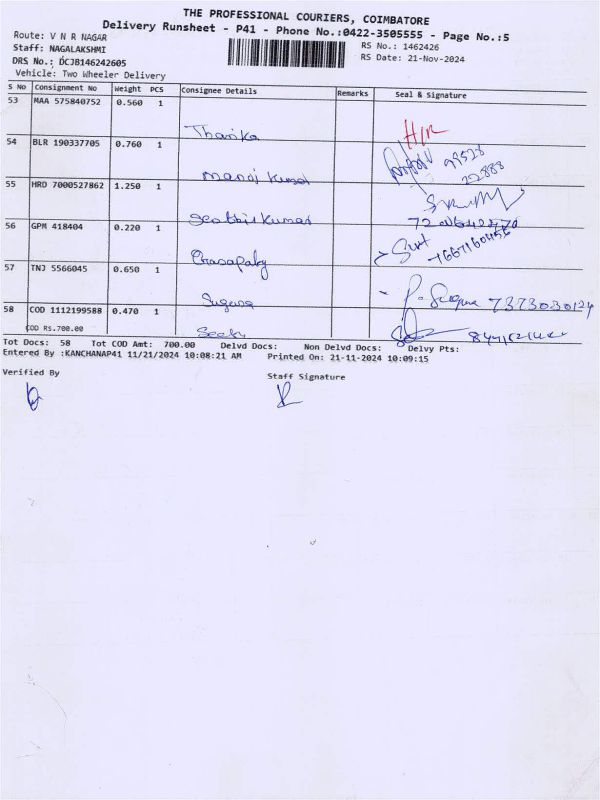 THE PROFESSIONAL COURIERS, COIMBATORE
Delivery Runsheet - P41 - Phone No.:0422-3505555 - Page No.:5
Route: V N R NAGAR
RS No.: 1462426
Staff: NAGALAKSHMI
RS Date: 21-Nov-2024
DRS No.: DCJB146242605
Vehicle: Two Wheeler Delivery
S No Consignment No Weight PCS Consignee Details Remarks Seal & Signature
53 MAA 575840752 0.560 1
Tharika H/R
54 BLR 190337705 0.760 1
99528
22888
manoj kumar
55 HRD 7000527862 1.250 1
Senthil kumar
56 GPM 418404 0.220 1
57 TNJ 5566045 0.650 1
Suguna P. Suguna 7373030124
58 COD 1112199588 0.470 1
COD RS.700.00
Tot Docs: 58 Tot COD Amt: 700.00 Delvd Docs: Non Delvd Docs: Delvy Pts:
Entered By :KANCHANAP41 11/21/2024 10:08:21 AM Printed On: 21-11-2024 10:09:15
Verified By Staff Signature